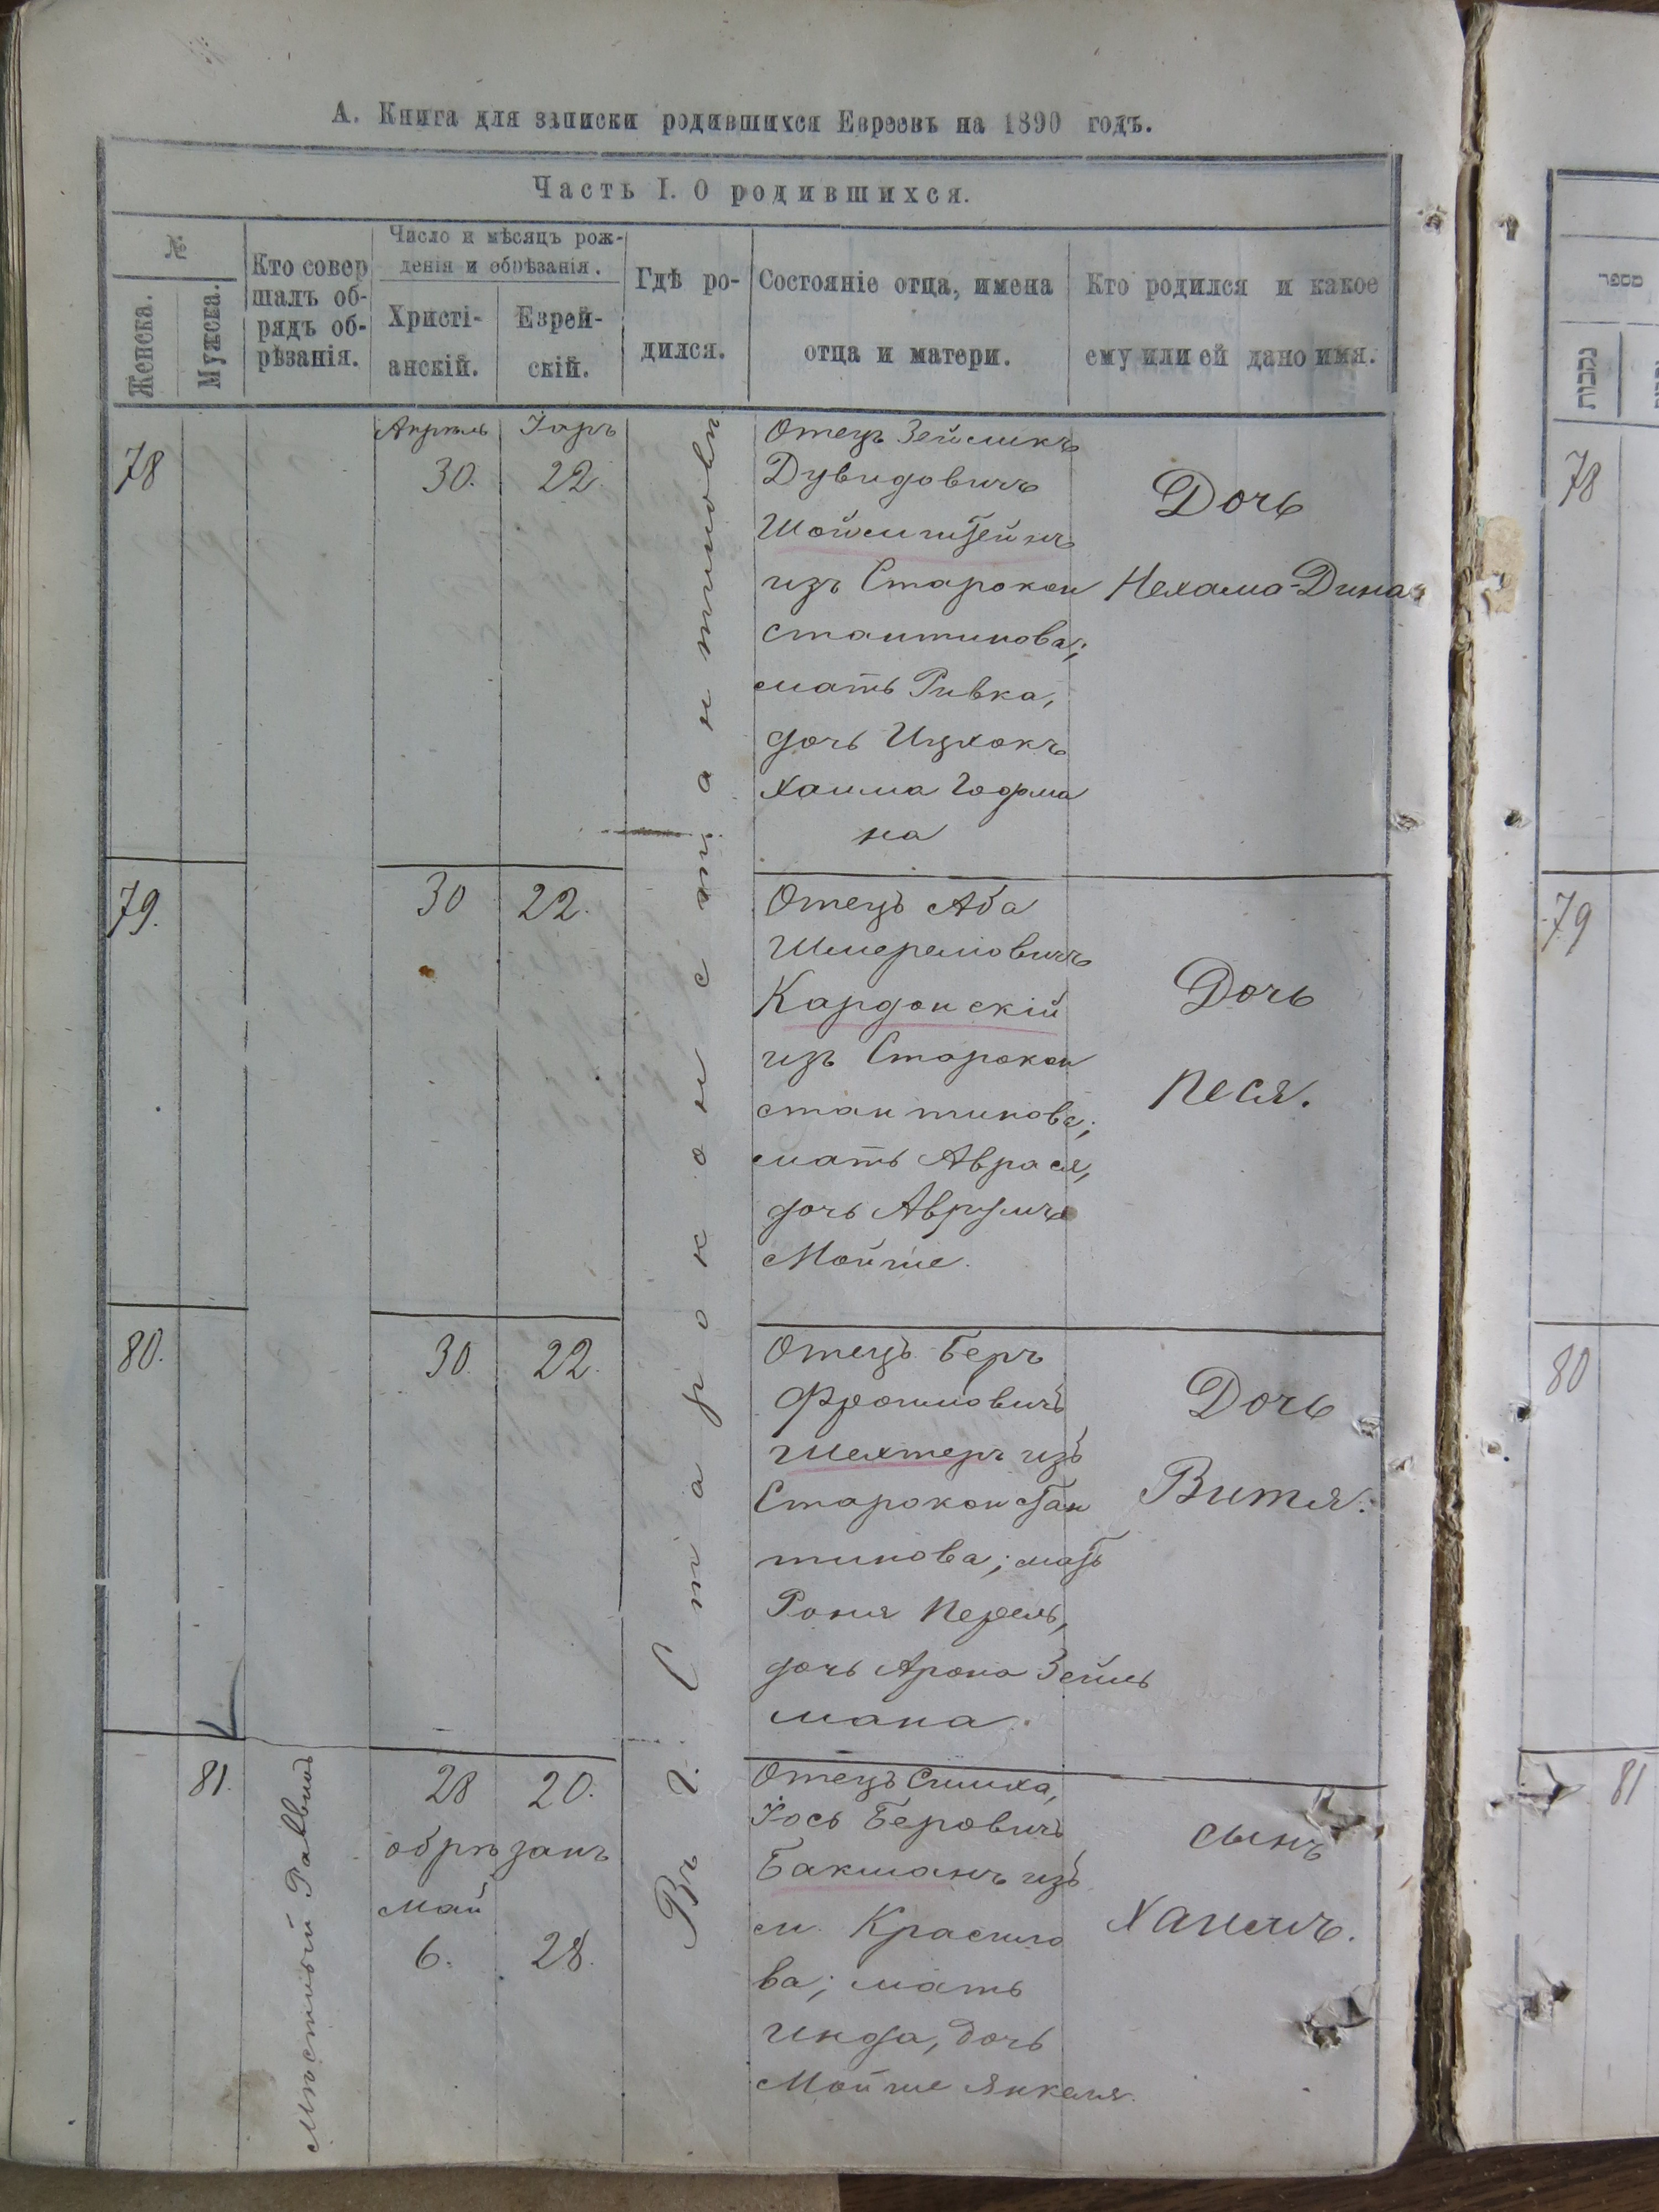 А. Книга для записки родившихся Евреевъ на 1890 годъ.
Часть I. О родившихся.
№
Женска.
Мужска.
Кто совер
шалъ об-
рядъ об-
рѣзанія.
Число и мѣсяцъ рож-
денія и обрѣзанія.
Христі-
анскій.
Еврей-
скій.
Гдѣ ро-
дился.
Состояніе отца, имена
отца и матери.
Кто родился и какое
ему или ей дано имя.
Въ г. Староконстантиновѣ
78
Апрѣль
30.
Іяръ
22.
Отецъ Зейликъ
Дувидовичъ
Шойлштейнъ
изъ Старокон
стантинова;
мать Ривка,
дочь Ицхокъ
Хаима Гофма
на
Дочь
Нехама-Дина
79.
30
22.
Отецъ Аба
Шмерелювичъ
Кардонскій
изъ Старокон
стантинова;
мать Аврася,
дочь Аврумъ
Мойше.
Дочь
Песя.
80.
30
22.
Отецъ Беръ
Фроимовичъ
Шехтеръ изъ
Старокон стан
тинова; мать
Роня Перель,
дочь Арона Зейль
мана.
Дочь
Витя.
81.
Мѣстный Раввинъ
28
20.
обрѣзанъ
май
6.
28.
Отецъ Симха,
Іось Беровичъ
Бакманъ изъ
м. Красило
ва; мать
Инда, дочь
Мойше Янкеля.
сынъ
Хаимъ.
מספר
נקבות
78
79
80
81